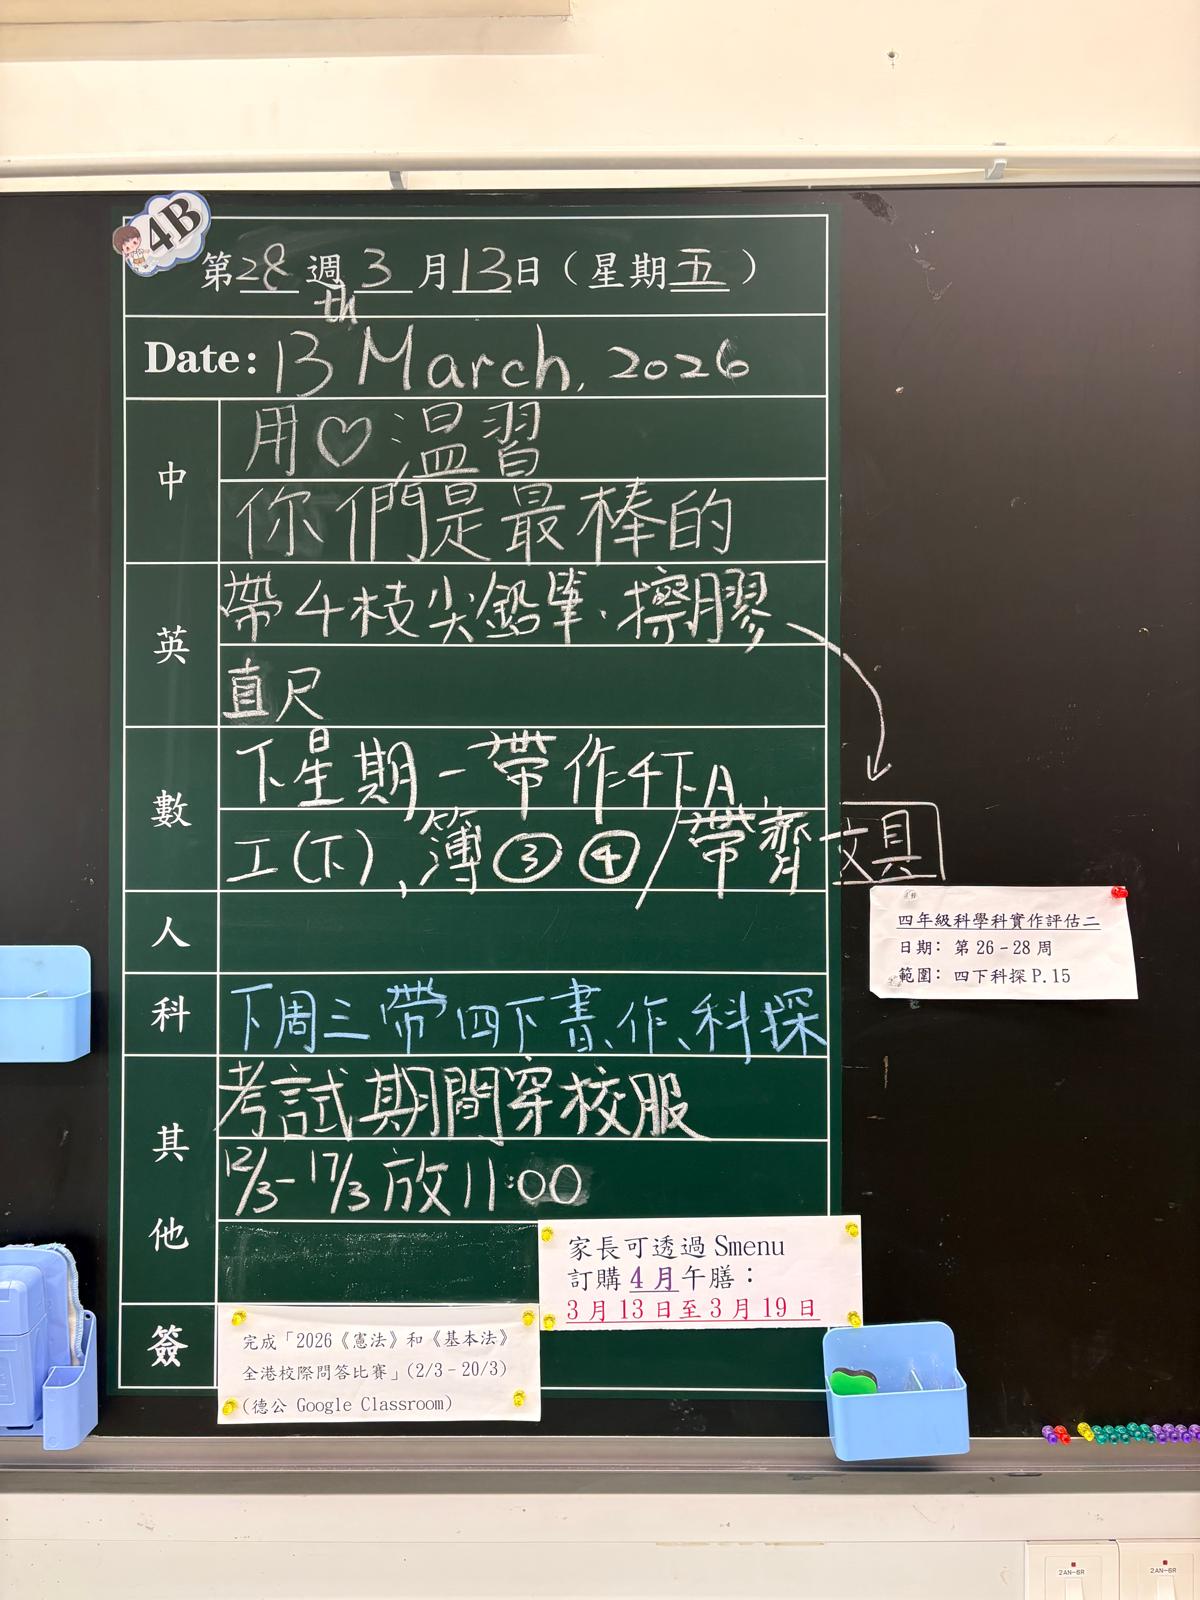 4B
第28週3月13日（星期五）
Date: 13th March, 2026
中
用♡溫習
你們是最棒的
英
帶4枝尖鉛筆、擦膠
直尺
數
下星期一帶作4下A,
工(下),簿③④/帶齊文具
人
科
下周三帶四下書、作、科探
其他
考試期間穿校服
12/3-17/3放11:00
簽
四年級科學科實作評估二
日期：第26-28周
範圍：四下科探P.15
家長可透過Smenu
訂購4月午膳：
3月13日至3月19日
完成「2026《憲法》和《基本法》
全港校際問答比賽」(2/3-20/3)
(德公 Google Classroom)
2AN-6R
2AN-6R